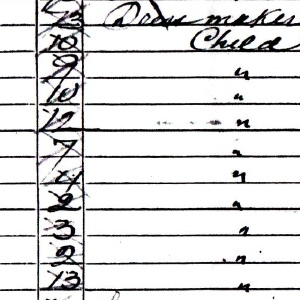 13 Dress maker
10 Child
9 "
10 "
12 "
7 "
4 "
2 "
3 "
2 "
13 "